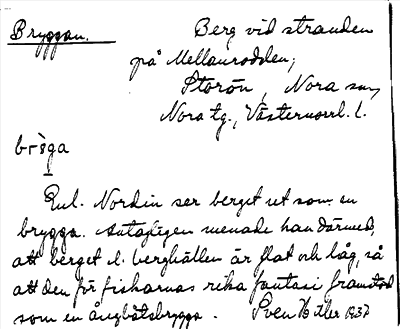 Bryggan. Berg vid stranden
på Mellanrodden,
Storön, Nora sn,
Nora tg., Västernorrl. l.
Enl. Nordin ser berget ut som en
brygga. Antagligen menade han därmed,
att berget l. berghällen är flat och låg, så
att den för fiskarnas rika fantasi framstod
som en ångbåtsbrygga. Sven 1937